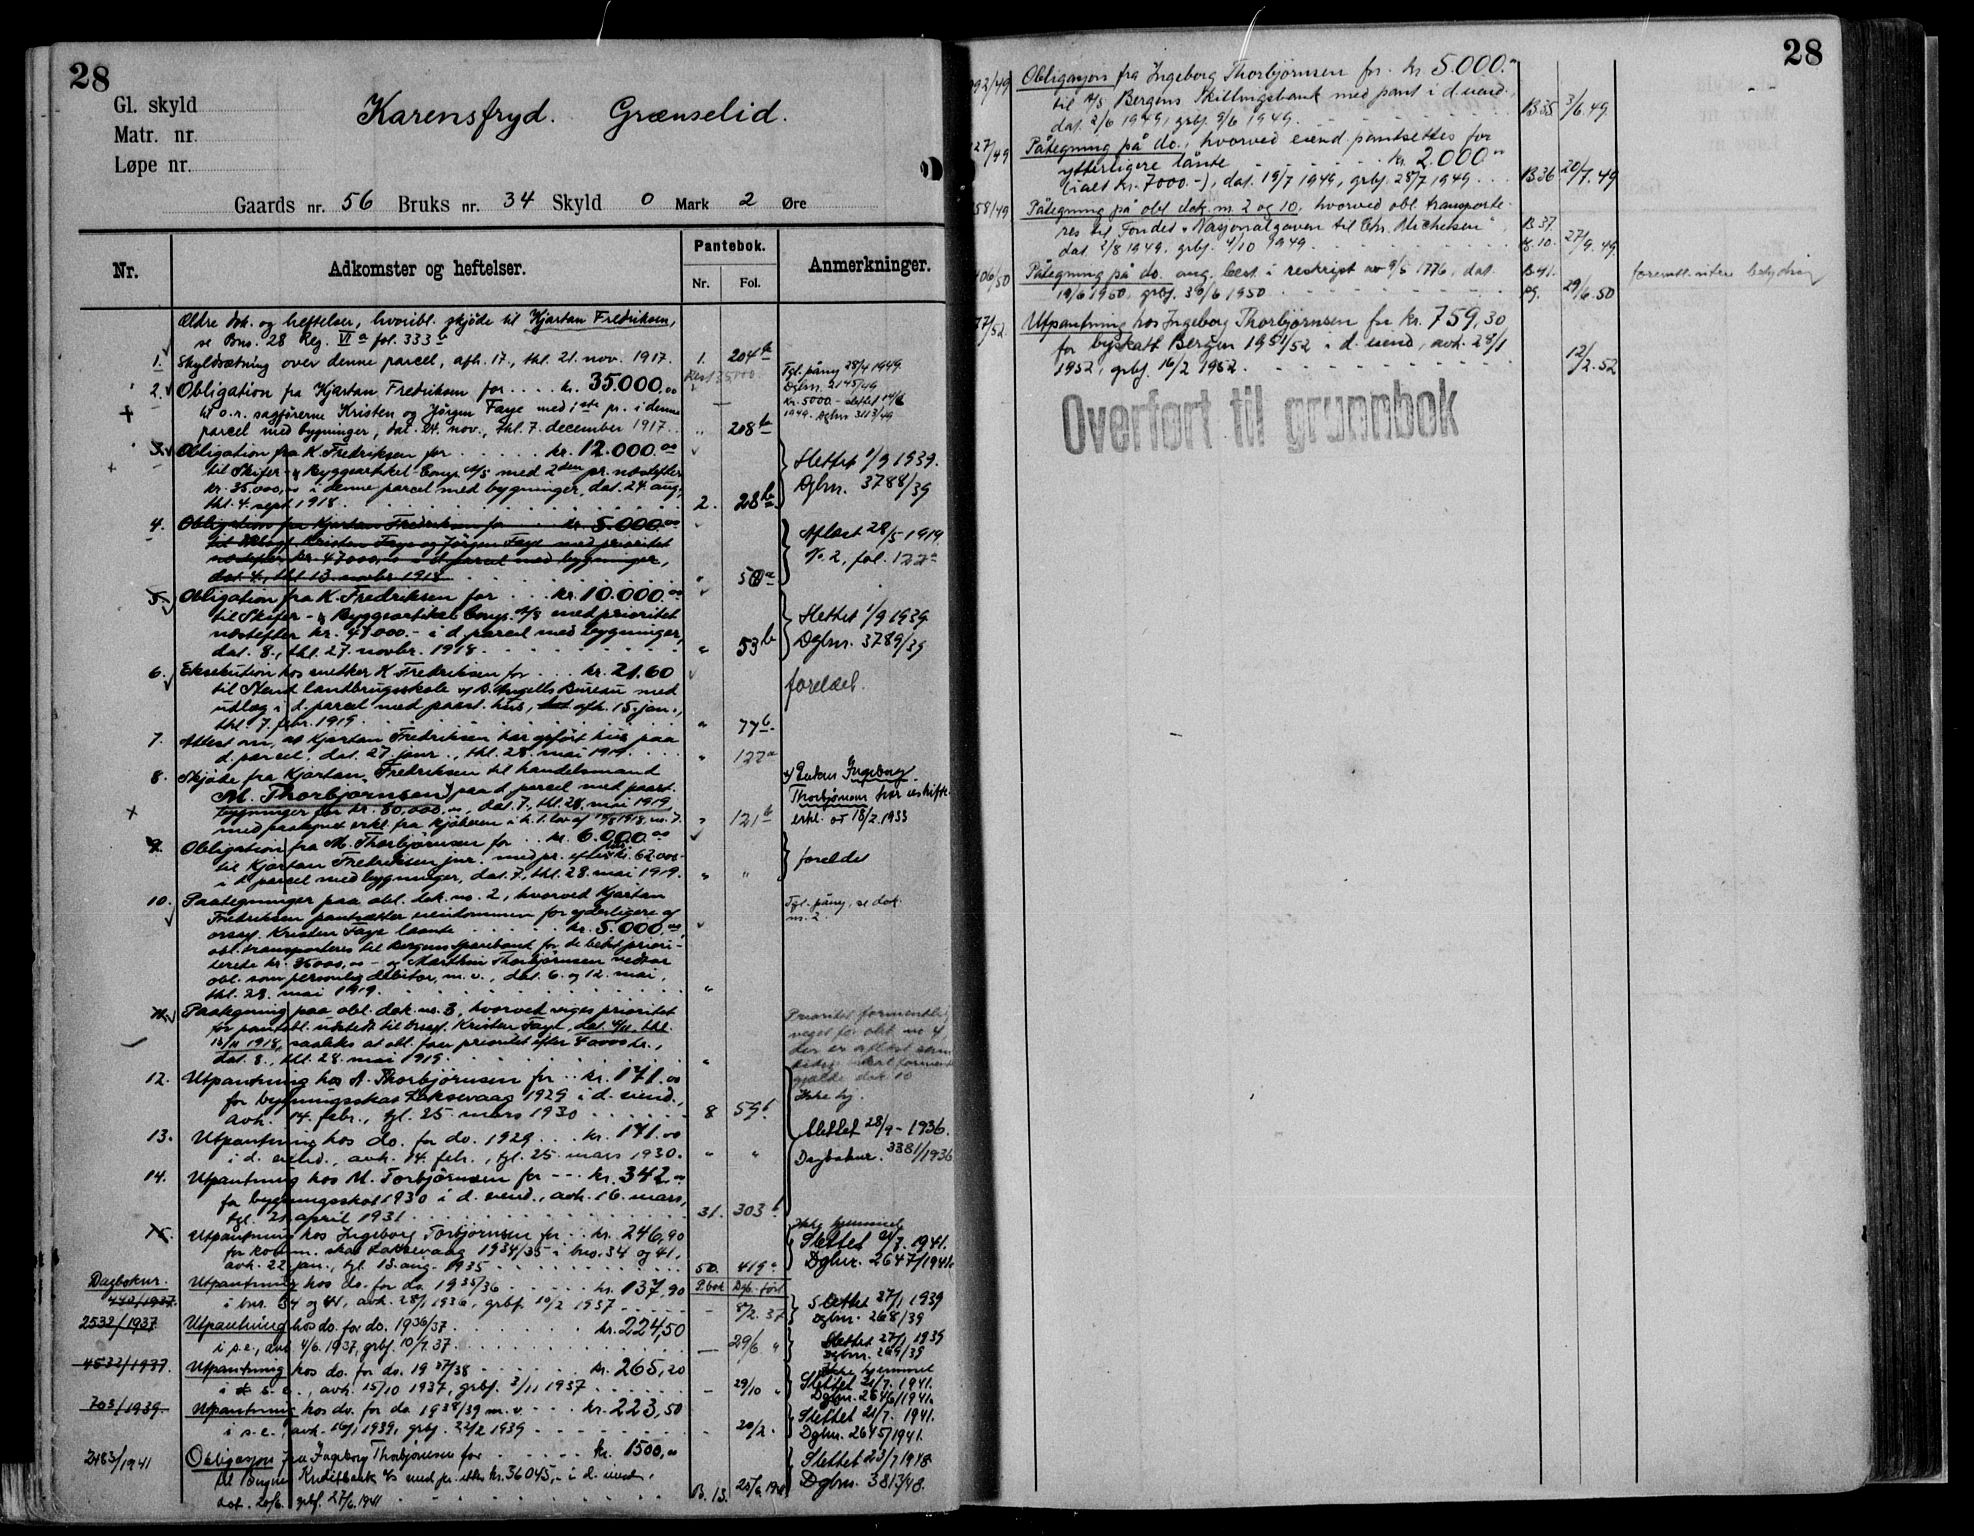 28
Gl. skyld
Matr. nr.
Løpe nr.
Karensfryd. Grænselid.
Gaards nr. 56 Bruks nr. 34 Skyld 0 Mark 2 Øre
Nr.
Adkomster og heftelser.
Pantebok.
Nr. Fol.
Anmerkninger.
Ældre dok. og heftelser, hvoribl. skjøde til Kjartan Fredriksen,
se Bno. 28 Reg. VI a fol. 333
1. Skyldsætning over denne parcel, afh. 17., thl. 21. nov. 1917. 1. 204 b
2. Obligation fra Kjartan Fredriksen for .... kr. 35.000,00
til o.r. sagførerne Kristen og Jørgen Faye med 1ste pr. i denne
parcel med bygninger, dat. 24. nov., thl. 7. december 1917. " 208 b
Tgl. påny 28/4 1949.
Dgbnr. 2145/49
kr. 5000.- slettet 14/6
1949. Dgbnr 3113/49
3. Obligation fra K. Fredriksen for ..... kr. 12.000.00
til Skifer- & Byggeartikel Comp. A/S med 2den pr. næstefter
kr. 35.000,00 i denne parcel med bygninger, dat. 24. aug.,
thl. 4. sept. 1918. 2. 28 b
Slettet 1/9 1939.
Dgbnr. 3788/39
4. Obligation fra Kjartan Fredriksen for .. kr. 5.000.00
Kristen Faye og Jørgen Faye med prioritet
næstefter kr. 47000,00 i d. parcel med bygninger,
dat. 4., thl. 13. novbr. 1918 " 50 a
Aflæst 28/5 1919
No. 2, fol. 122 a
5. Obligation fra K. Fredriksen for ... kr. 10.000.00
til Skifer- & Byggeartikel Comp. A/S med prioritet
næstefter kr. 47000.- i d. parcel med bygninger,
dat. 8., thl. 27. novbr. 1918. " 53 b
Slettet 1/9 1939
Dgbnr. 3789/39
6. Eksekution hos snedker K. Fredriksen for ... kr. 21.60
til Stend landbrugsskole v/ B. Angells Bureau med
udlæg i d. parcel med paast. hus, afh. 15. jan.,
thl. 7. febr. 1919. " 77 b
foreldet.
7. Attest om, at Kjartan Fredriksen har opført hus paa
d. parcel, dat. 27. janr., thl. 28. mai 1919. " 122 a
8. Skjøde fra Kjartan Fredriksen til handelsmand
M. Thorbjørnsen x) paa d. parcel med paast.
bygninger for kr. 80,000,00, dat. 7., thl. 28. mai 1919,
med paategnet erkl. fra kjøberen i h. t. lov af 1918, nr. 7. " 121 b
x) Enken Ingeborg
Thorbjørnsen har uskifte-
erkl. av 18/2. 1933
9. Obligation fra M. Thorbjørnsen for .. kr. 6.000.00
til Kjartan Fredriksen jnr. med pr. efter kr. 62.000.-
i d. parcel med bygninger, dat. 7., thl. 28. mai 1919. " "
foreldet
10. Paategninger paa obl. dok. no. 2, hvorved Kjartan
Fredriksen pantsætter eiendommen for yderligere af
orsagf. Kristen Faye laante ..... kr. 5.000,00,
obl. transporteres til Bergens Sparebank for de bedst priori-
terede kr. 36000,00 - og Marthin Thorbjørnsen vedtar
obl. som personlig debitor, m.v., dat. 6. og 12. mai,
thl. 28. mai 1919. "
Tgl. påny, se dok.
nr. 2
11. Paategning paa obl. dok. no. 3, hvorved viges prioritet
for pantobl. udstedt til orsagf. Kristen Faye, dat. 4/11, thl.
13/11 1918, saaledes at obl. faar prioritet efter 40000 kr.,
dat. 8., thl. 28. mai 1919. "
Prioritet formentlig
veget for obl. no 4,
der er aflæst
gjælde dok 10
12. Utpantning hos M. Thorbjørnsen for .. kr. 171.00
for bygningsskat Laksevaag 1929 i d. eiend.,
avh. 14. febr., tgl. 25. mars 1930 ..... 8 59 b
Ikke hj.
13. Utpantning hos do. for do. 1929 ... kr. 171.00
i d. eiend., avh. 14. febr., tgl. 25. mars 1930. " "
Slettet 28/9 - 1936.
Dagboknr. 3381/1936
14. Utpantning hos M. Torbjørnsen for --- kr. 342.00
for bygningsskat 1930 i d. eiend., avh. 16. mars,
tgl. 21 april 1931 31. 303 b
15. Utpantning hos Ingeborg Torbjørnsen for .. kr. 246,90
for komm. skat Laksevaag 1934/35 i bno. 34 og 41,
avh. 22 jan., tgl. 13. aug. 1935 50. 419 a
Ikke hjemmel
Slettet 21/7. 1941.
Dgbnr. 2647/1941.
Dagboknr.
442/1937. Utpantning hos do. for do. 1935/36 ... kr. 137,90 P.bok Dgb. ført
i bnr. 34 og 41, avh. 28/1 1936, grbf. 10/2 1937 ..... - 8/2. 37
Slettet 27/1 1939
Dgbnr. 268/39
2532/1937 Utpantning hos do. for do. 1936/37 ... kr. 224,50
i s.e., avh. 4/6. 1937, grbf. 10/7. 37 - 29/6 "
Slettet 27/1 1939
Dgbnr. 269/39
4532/1937. Utpantning hos do. for do. 1937/38 ... kr. 265,20
i s. e., avh. 15/10 1937, grbf. 3/11 1937 ... - 29/10 "
Ikke hjemmel
Slettet 21/7. 1941.
Dgbnr. 2646/1941.
703/1939. Utpantning hos do. for do 1938/39 m.v. ... kr. 223,50
i s.e., avh. 16/1 1939, grbf. 22/2 1939 - 20/2.
Slettet 21/7. 1941.
Dgbnr. 2645/1941.
2183/1941 Obligasjon fra Ingeborg Thorbjørnsen for ... kr. 1500,00
til Bergens Kreditbank A/S med pr. etter kr. 36045,- i d. eiend.,
dat. 20/6. grbf. 27/6. 1941 B. 13. 25/6. 1941
Slettet 23/7 1948
Dgbnr. 3813/48.
28
92/49 Obligasjon fra Ingeborg Thorbjørnsen for kr. 5.000.-
til A/S Bergens Skillingsbank med pant i d. eiend.,
dat. 2/6 1949, grbf. 9/6 1949. B 35 3/6. 49
27/49 Påtegning på do., hvorved eiend. pantsettes for
ytterligere lånte ..... kr. 2.000.-
(ialt kr. 7000.-), dat. 19/7 1949, grbf. 28/7 1949 ... B 36 20/7. 49
58/49 Påtegning på obl. dok. nr. 2 og 10, hvorved obl. transporte-
res til Fondet "Nasjonalgaven til Chr. Michelsen",
dat. 2/8 1949, grbf. 4/10 1949. B 37. 27/9. 49
06/50 Påtegning på do. ang. best. i reskript av 9/5 1776, dat.
19/6 1950, grbf. 30/6 1950 B 41. 29/6. 50
forementl. uten betydning
77/52 Utpantning hos Ingeborg Thorbjørnsen for kr. 759,30
for byskatt Bergen 1951/52 i d. eiend, avh. 28/1
1952, grbf. 16/2 1952 12/2. 52
Overført til grunnbok